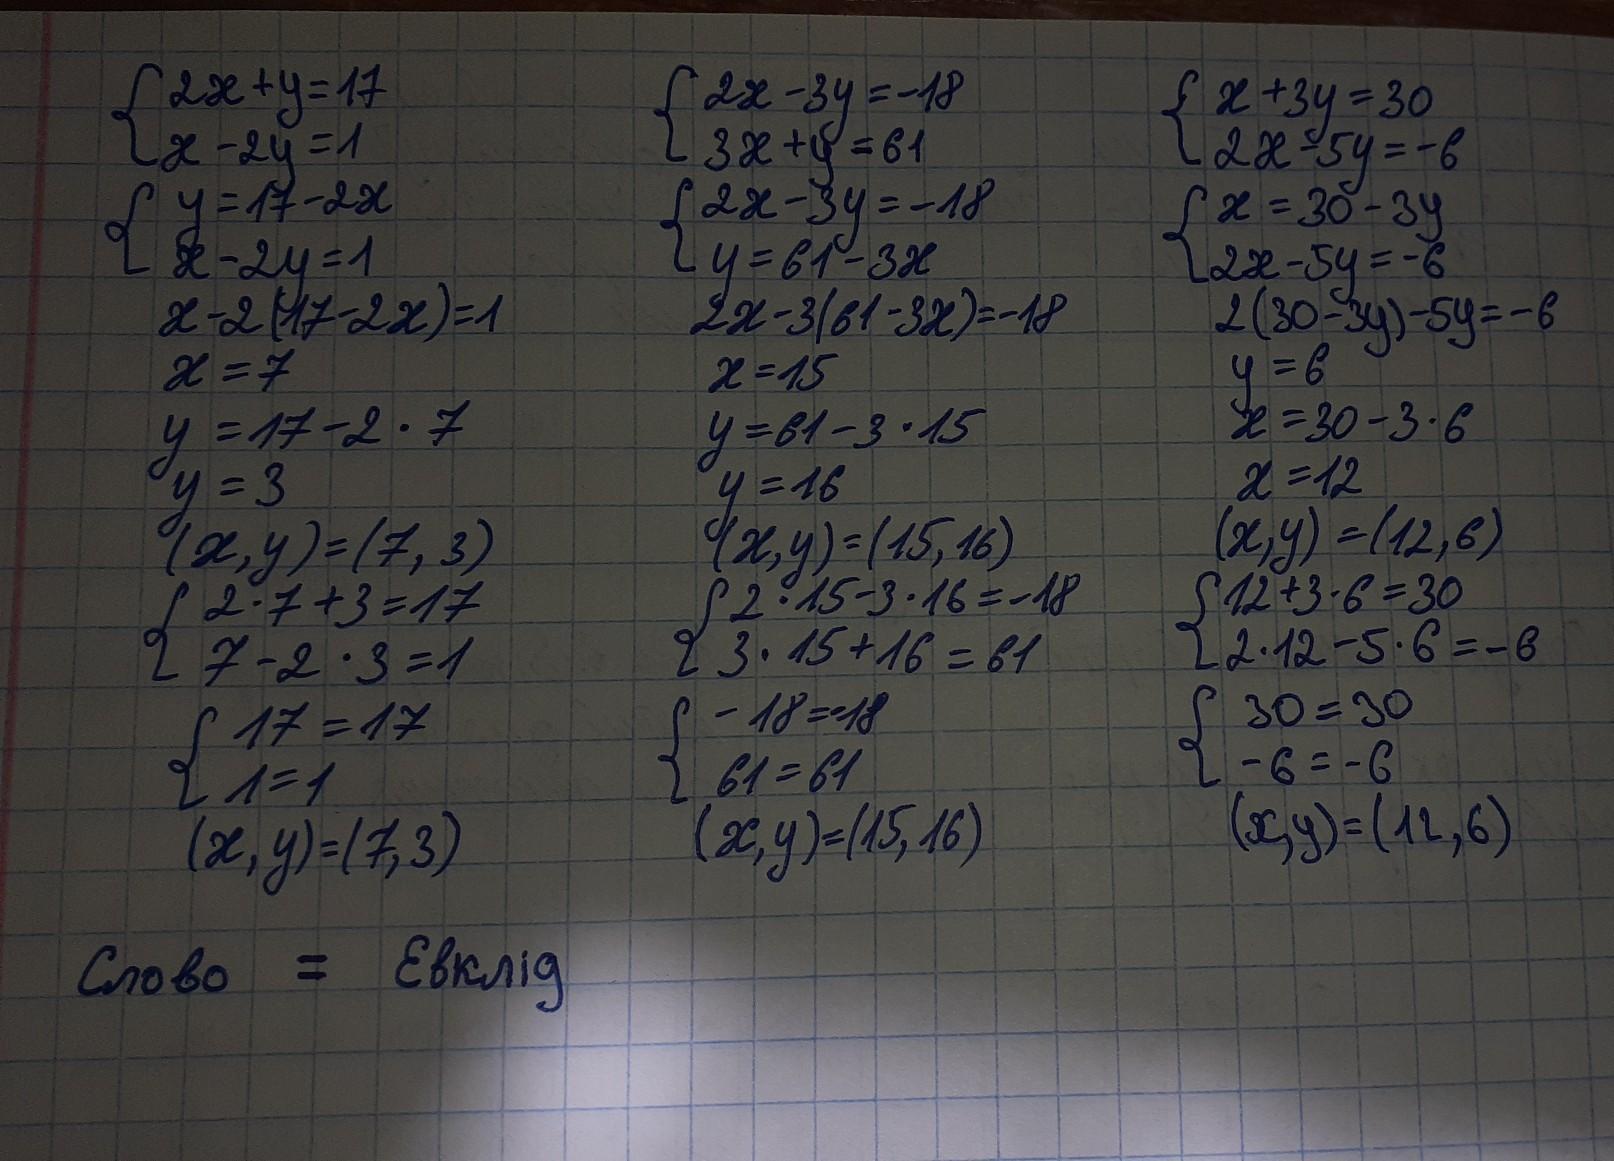 2x+y=17
x-2y=1
y=17-2x
x-2y=1
x-2(17-2x)=1
x=7
y=17-2·7
y=3
(x,y)=(7,3)
2·7+3=17
7-2·3=1
17=17
1=1
(x,y)=(7,3)
2x-3y=-18
3x+y=61
2x-3y=-18
y=61-3x
2x-3(61-3x)=-18
x=15
y=61-3·15
y=16
(x,y)=(15,16)
2·15-3·16=-18
3·15+16=61
-18=-18
61=61
(x,y)=(15,16)
x+3y=30
2x-5y=-6
x=30-3y
2x-5y=-6
2(30-3y)-5y=-6
y=6
x=30-3·6
x=12
(x,y)=(12,6)
12+3·6=30
2·12-5·6=-6
30=30
-6=-6
(x,y)=(12,6)
Слово = Евклід